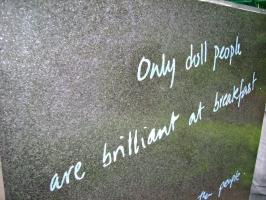 Only dull people
are brilliant at breakfast.
people